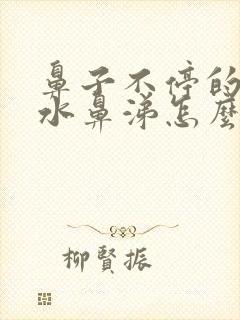 鼻子不停的
水鼻涕怎麼
柳賢振